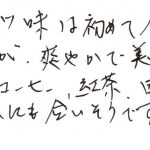 ツ味は初めて
が、爽やかで美
コーヒー、紅茶、
にも合いそうです